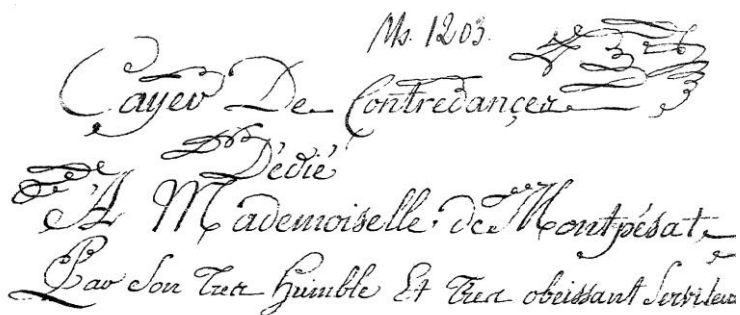 Ms. 1203.
Cayer De Contredances
Dédié
A Mademoiselle de Montpésat
Par Son Tres humble Et Tres obeissant Serviteur